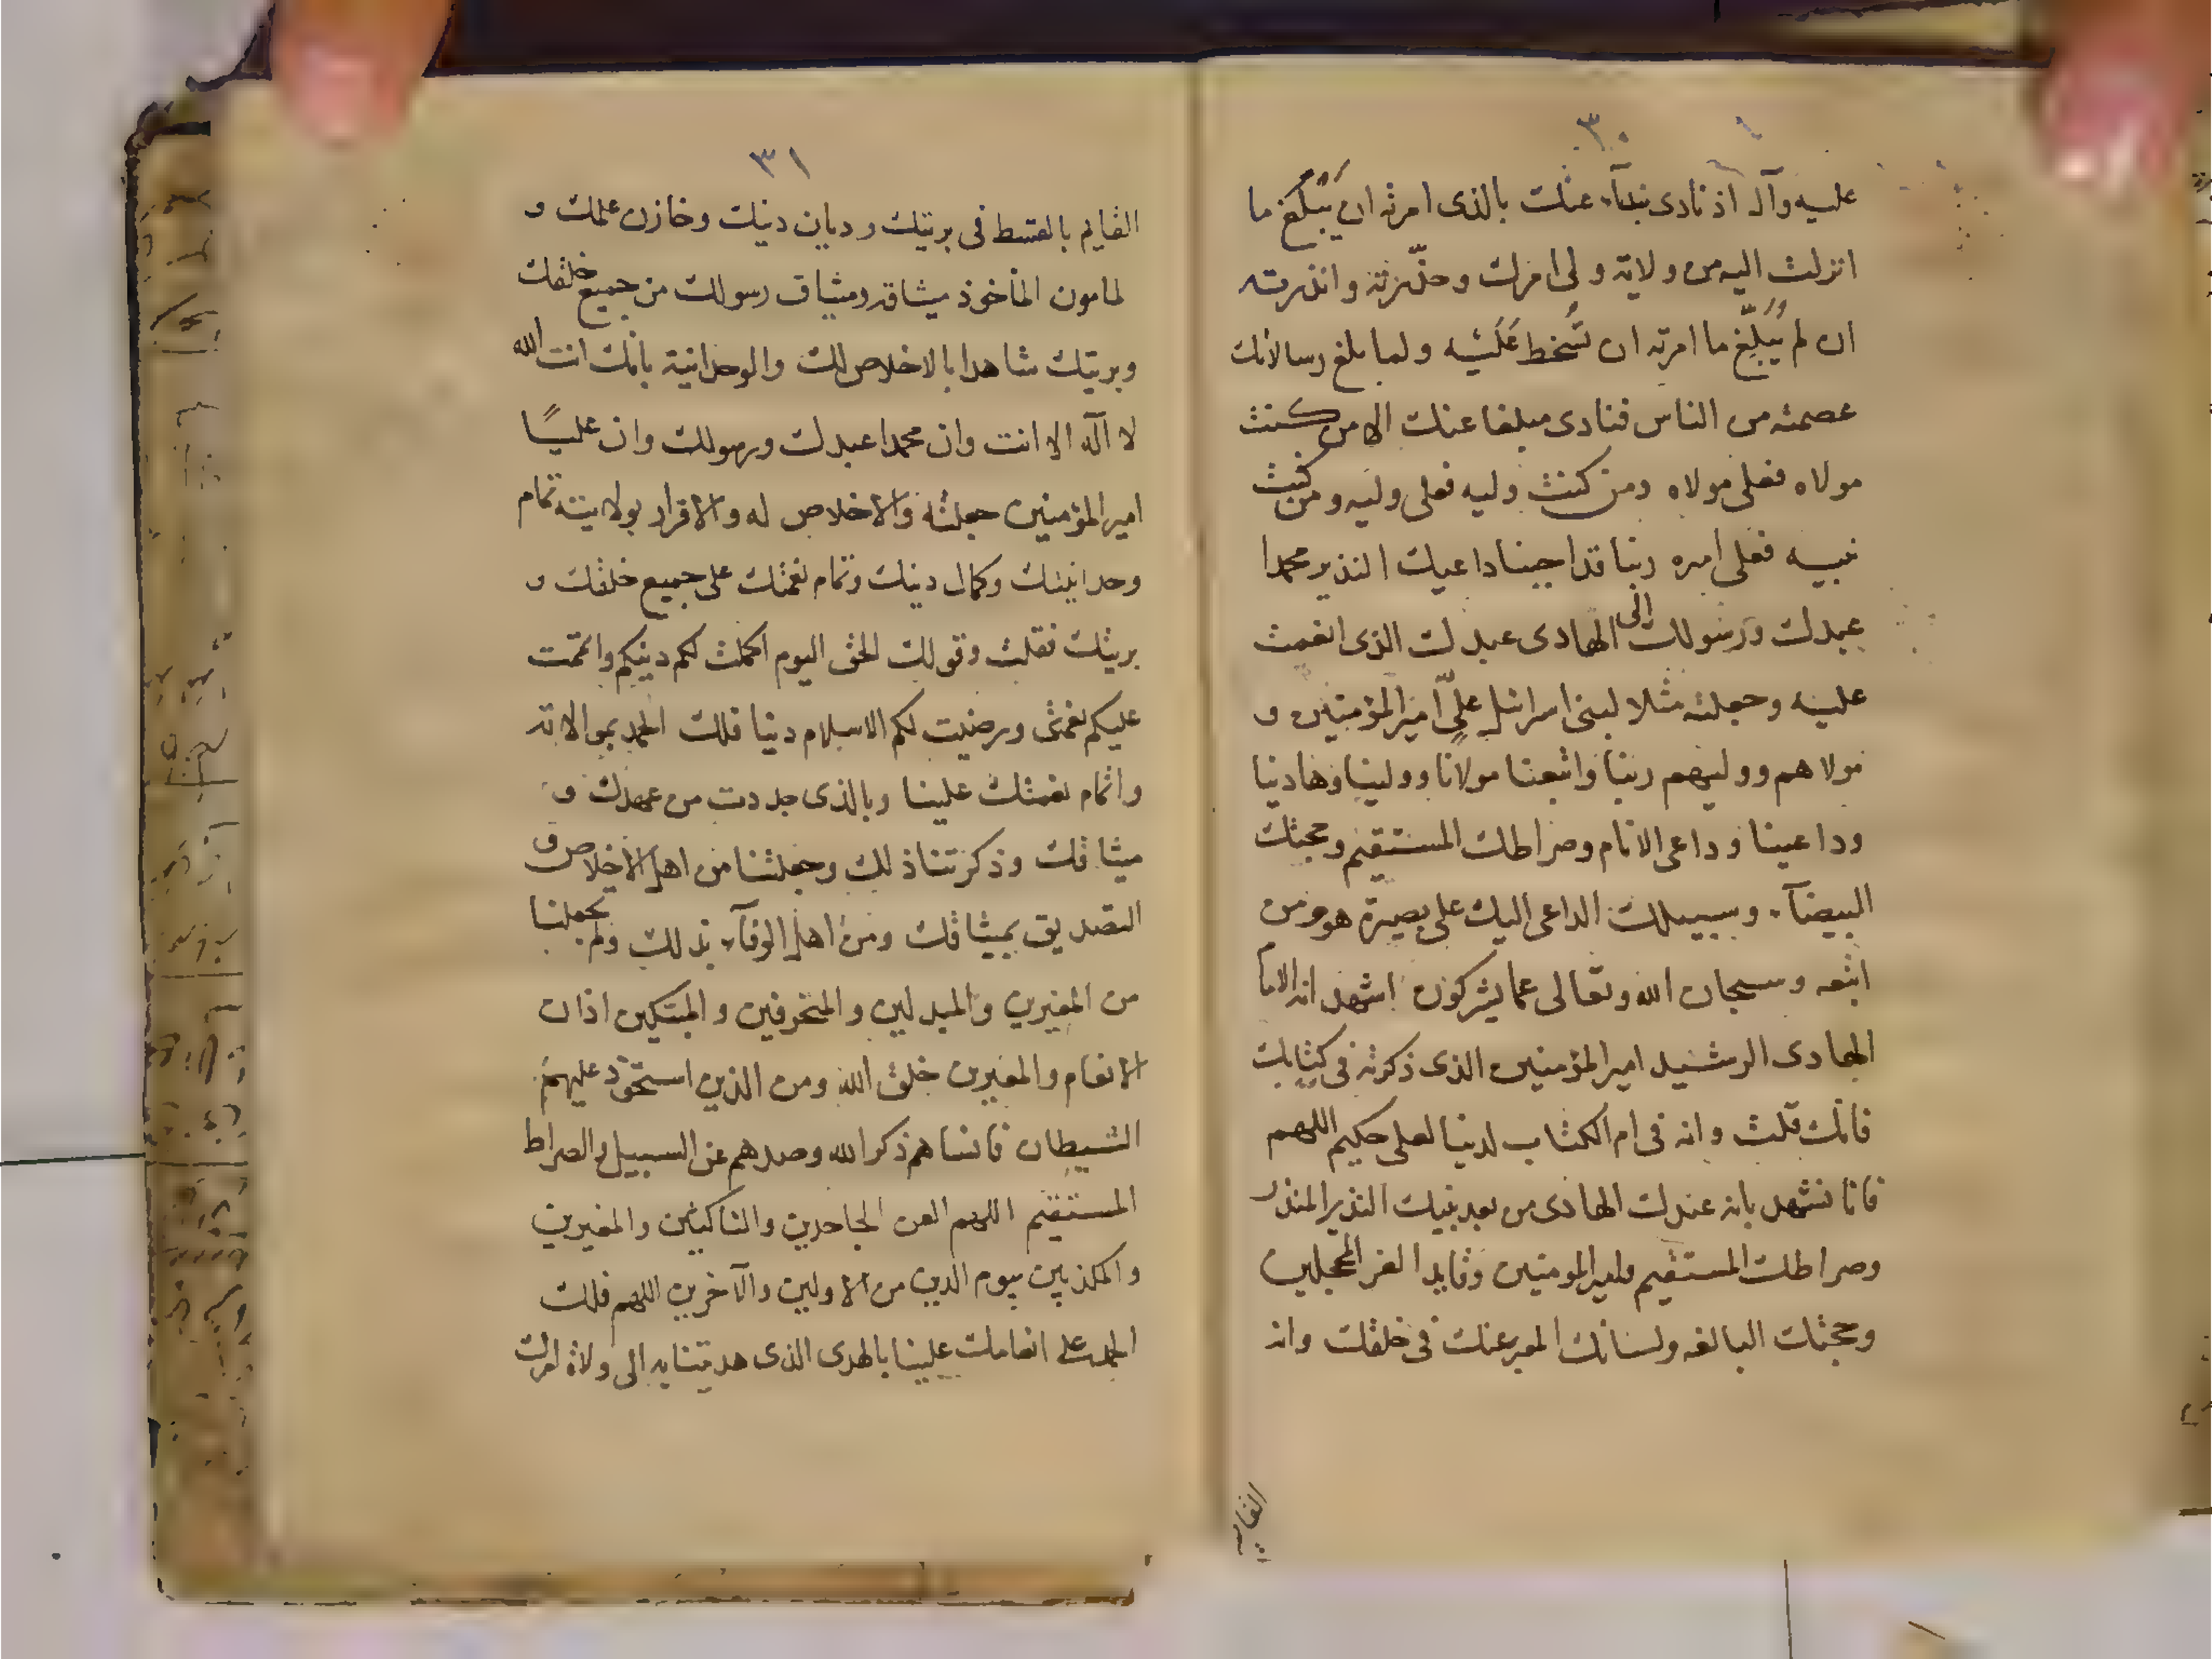 ٣٠
عليه وآله اذ نادى بندآء عنك بالذى امرته ان يُبَلّغ ما
انزلت اليه من ولاية ولى امرك وحذّرته وانذرته
ان لم يُبَلِّغ ما امرته ان تُسخط عَلَيْه ولما بلغ رسالاتك
عصمته من الناس فنادى مبلغا عنك الا من كنت
مولاه فعلى مولاه ومن كنت وليه فعلى وليه ومن كنت
نبيه فعلى اميره ربنا قد اجبنا داعيك النذير محمدا
عبدك ورسولك الى الهادى عبدك الذى انعمت
عليه وجعلته مثلا لبنى اسرائيل علىّ امير المؤمنين و
مولاهم ووليهم ربنا واتبعنا مولانا وولينا وهادينا
وداعينا وداعى الانام وصراطك المستقيم وحجتك
البيضآء وسبيلك الداعى اليك على بصيرة هو ومن
اتبعه وسبحان الله وتعالى عما يشركون اشهد انه الامام
الهادى الرشيد امير المؤمنين الذى ذكرته فى كتابك
فانك قلت وانه فى ام الكتاب لدينا لعلى حكيم اللهم
فانا نشهد بانه عبدك الهادى من بعد نبيك النذير المنذر
وصراطك المستقيم وامير المومنين وقايد الغر المحجلين
وحجتك البالغه ولسانك المعبر عنك فى خلقك وانه
القايم
٣١
القايم بالقسط فى بريتك وديان دينك وخازن علمك و
لمامون الماخوذ ميثاقه وميثاق رسولك من جميع خلقك
وبريتك شاهدا بالاخلاص لك والوحدانية بانك انت الله
لا آله الا انت وان محمدا عبدك ورسولك وان عليًا
امير المؤمنين جعلته والاخلاص له والاقرار بولايته تمام
وحدانيتك وكمال دينك وتمام نعمتك على جميع خلقك و
بريتك فقلت وقولك الحق اليوم اكملت لكم دينكم واتممت
عليكم نعمتى ورضيت لكم الاسلام دينا فلك الحمد بموالاته
واتمام نعمتك علينا وبالذى جددت من عهدك و
ميثاقك وذكرتنا ذلك وجعلتنا من اهل الاخلاص و
التصديق بميثاقك ومن اهل الوفآء بذلك ولم تجعلنا
من المغيرين والمبدلين والمنحرفين والمبتكين اذان
الانعام والمغيرين خلق الله ومن الذين استحوذ عليهم
الشيطان فانساهم ذكر الله وصدهم عن السبيل والصراط
المستقيم اللهم العن الجاحدين والناكثين والمغيرين
والمكذبين بيوم الدين من الاولين والآخرين اللهم فلك
الحمد على انعامك علينا بالهدى الذى هديتنا به الى ولاة امرك